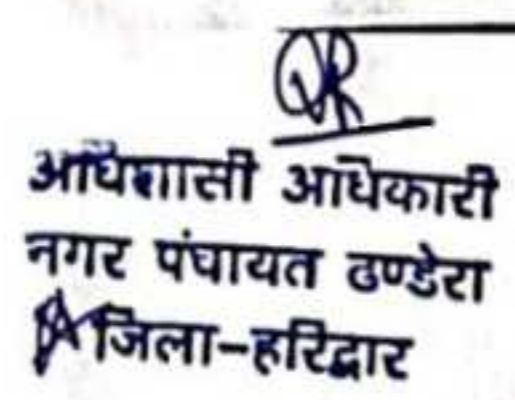 अधिशासी अधिकारी
नगर पंचायत ढण्डेरा
जिला-हरिद्वार